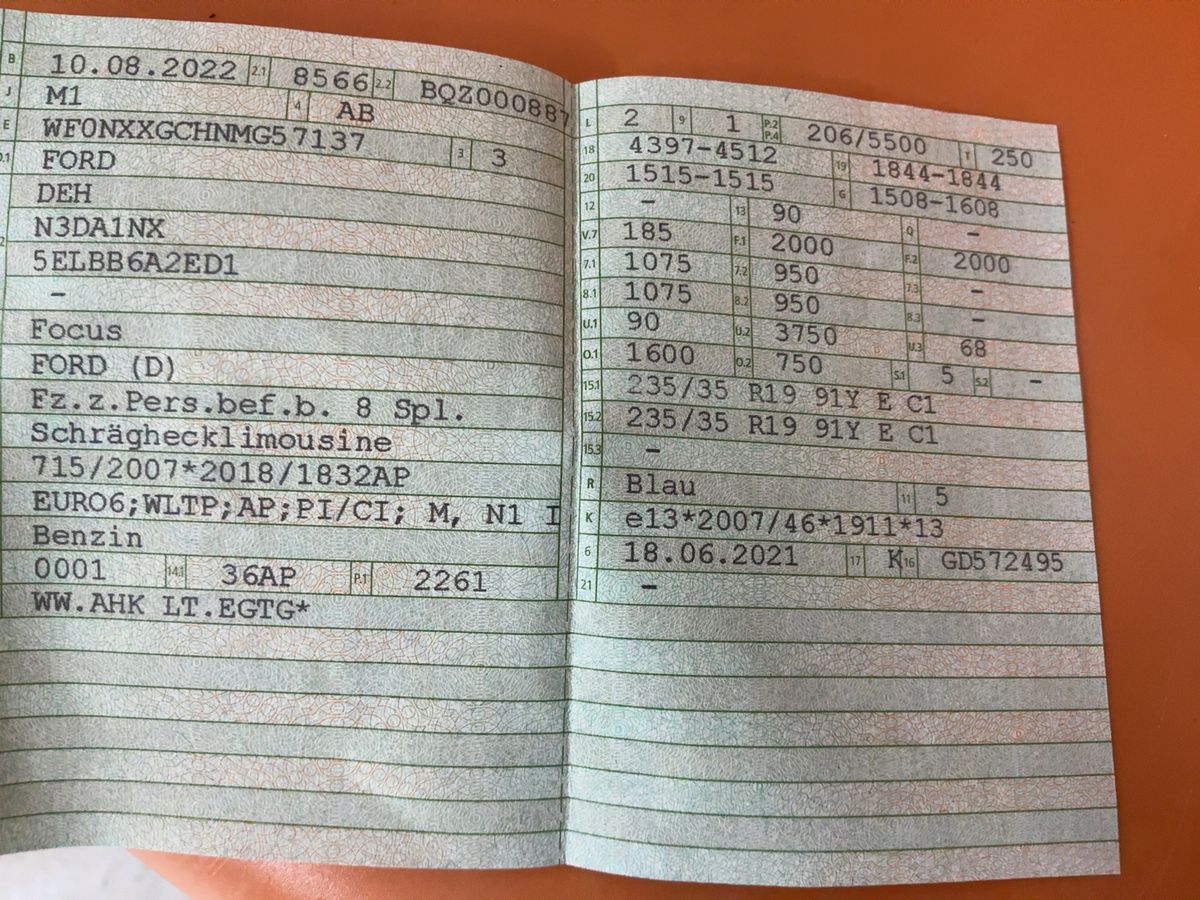 B 10.08.2022 2.1 8566 2.2 BQZ000887
J M1 4 AB
E WF0NXXGCHNMG57137 3 3
D.1 FORD
DEH
N3DA1NX
5ELBB6A2ED1
–
Focus
FORD (D)
Fz.z.Pers.bef.b. 8 Spl.
Schräghecklimousine
715/2007*2018/1832AP
EURO6;WLTP;AP;PI/CI; M, N1 I
Benzin
0001 14.1 36AP P.1 2261
WW.AHK LT.EGTG*
L 2 9 1 P.2 P.4 206/5500 T 250
18 4397-4512 19 1844-1844
20 1515-1515 G 1508-1608
12 – 13 90 Q –
V.7 185 F.1 2000 F.2 2000
7.1 1075 7.2 950 7.3 –
8.1 1075 8.2 950 8.3 –
U.1 90 U.2 3750 U.3 68
O.1 1600 O.2 750 S.1 5 S.2 –
15.1 235/35 R19 91Y E C1
15.2 235/35 R19 91Y E C1
15.3 –
R Blau 11 5
K e13*2007/46*1911*13
6 18.06.2021 17 K 16 GD572495
21 –